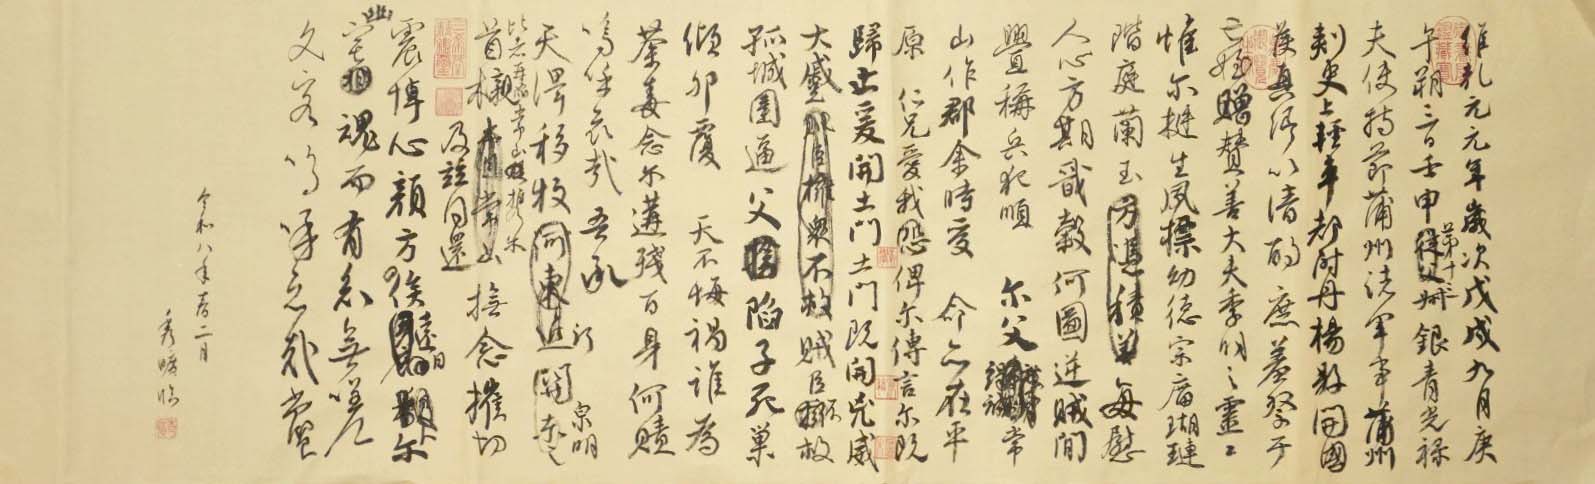 維乾元元年歲次戊戌九月庚
午朔三日壬申第十三從父叔銀青光祿
夫使持節蒲州諸軍事蒲州
刺史上輕車都尉丹楊縣開國
侯真卿以清酌庶羞祭于
亡姪贈贊善大夫季明之靈曰
惟爾挺生夙標幼德宗廟瑚璉
階庭蘭玉方憑積善每慰
人心方期戩穀何圖逆賊閒
釁稱兵犯順爾父竭誠常
山作郡余時受命亦在平
原仁兄愛我恐俾爾傳言爾既
歸止爰開土門土門既開兇威
大蹙賊臣擁衆不救賊臣不救
孤城圍逼父陷子死巢
傾卵覆天不悔禍誰為
荼毒念爾遘殘百身何贖
嗚呼哀哉吾承
天澤移牧河東近河關泉明
比者再陷常山攜爾
首櫬及茲同還撫念摧切
震悼心顏方俟遠日爾
幽宅魂而有知無嗟久
客嗚呼哀哉尚饗
令和八年二月
秀曠臨